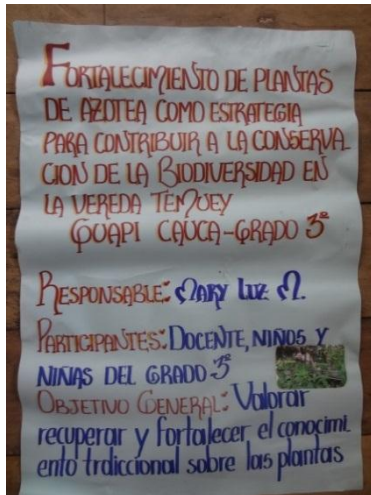 FORTALECIMIENTO DE PLANTAS
DE AZOTEA COMO ESTRATEGIA
PARA CONTRIBUIR A LA CONSERVA_
CION DE LA BIODIVERSIDAD EN
LA VEREDA TEMUEY
GUAPI CAUCA-GRADO 3º
RESPONSABLE: MARY LUZ M.
PARTICIPANTES: DOCENTE, NIÑOS Y
NIÑAS DEL GRADO 3º
OBJETIVO GENERAL: Valorar
recuperar y fortalecer el conocimi
ento tradiccional sobre las plantas